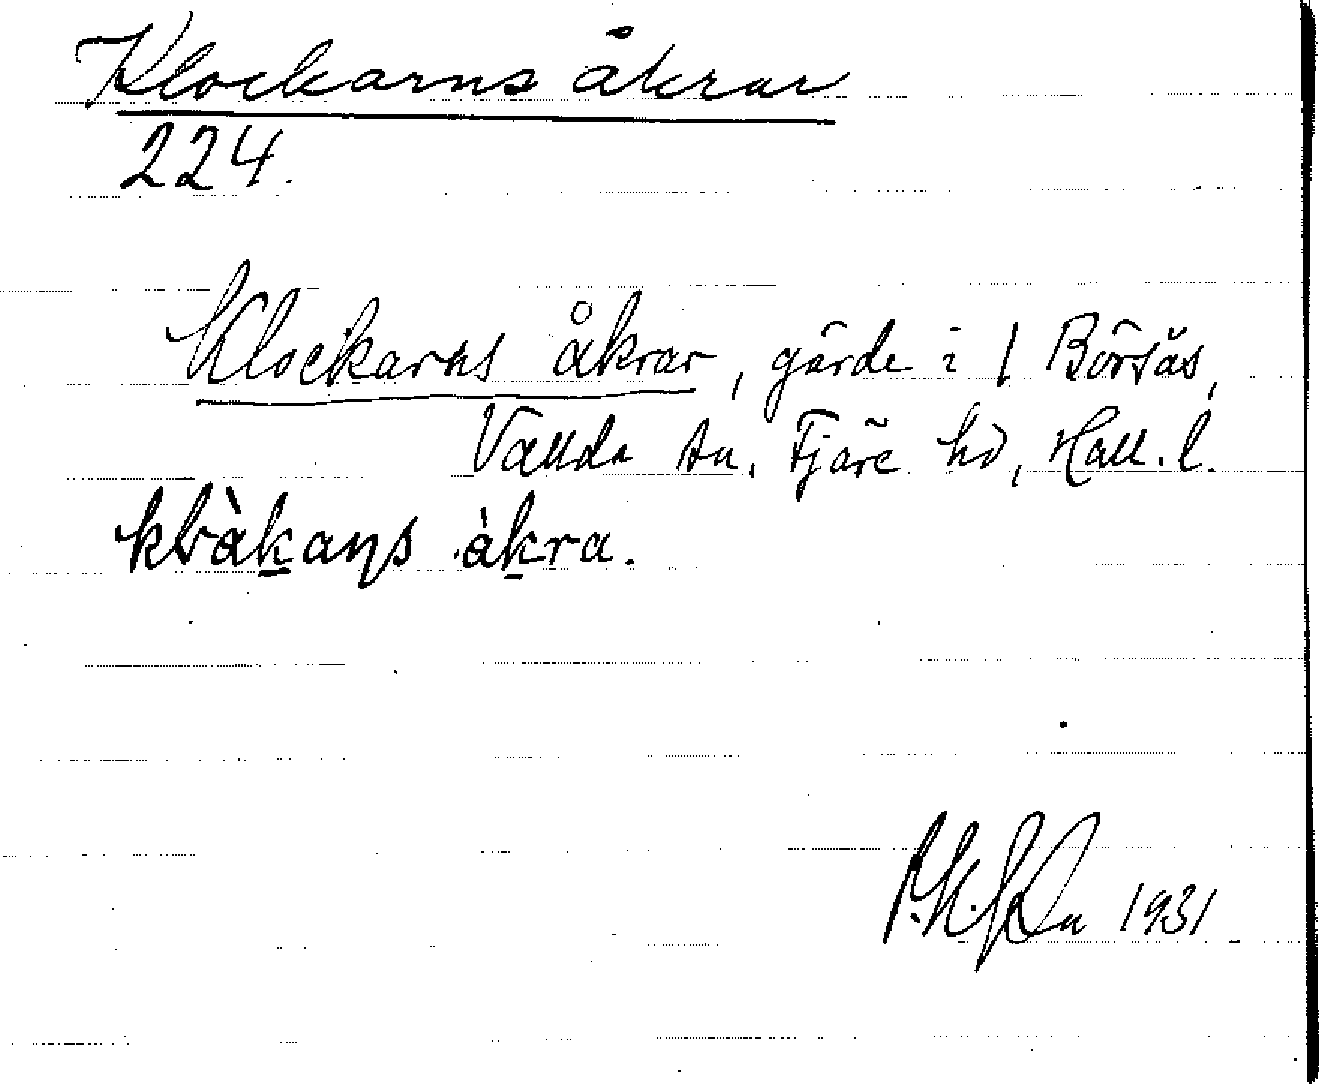 Klockarns åkrar
224.
Klockarns åkrar, gärde i 1 Börsås,
Vallda sn, Fjäre hd, Hall. l.
åkra.
1931